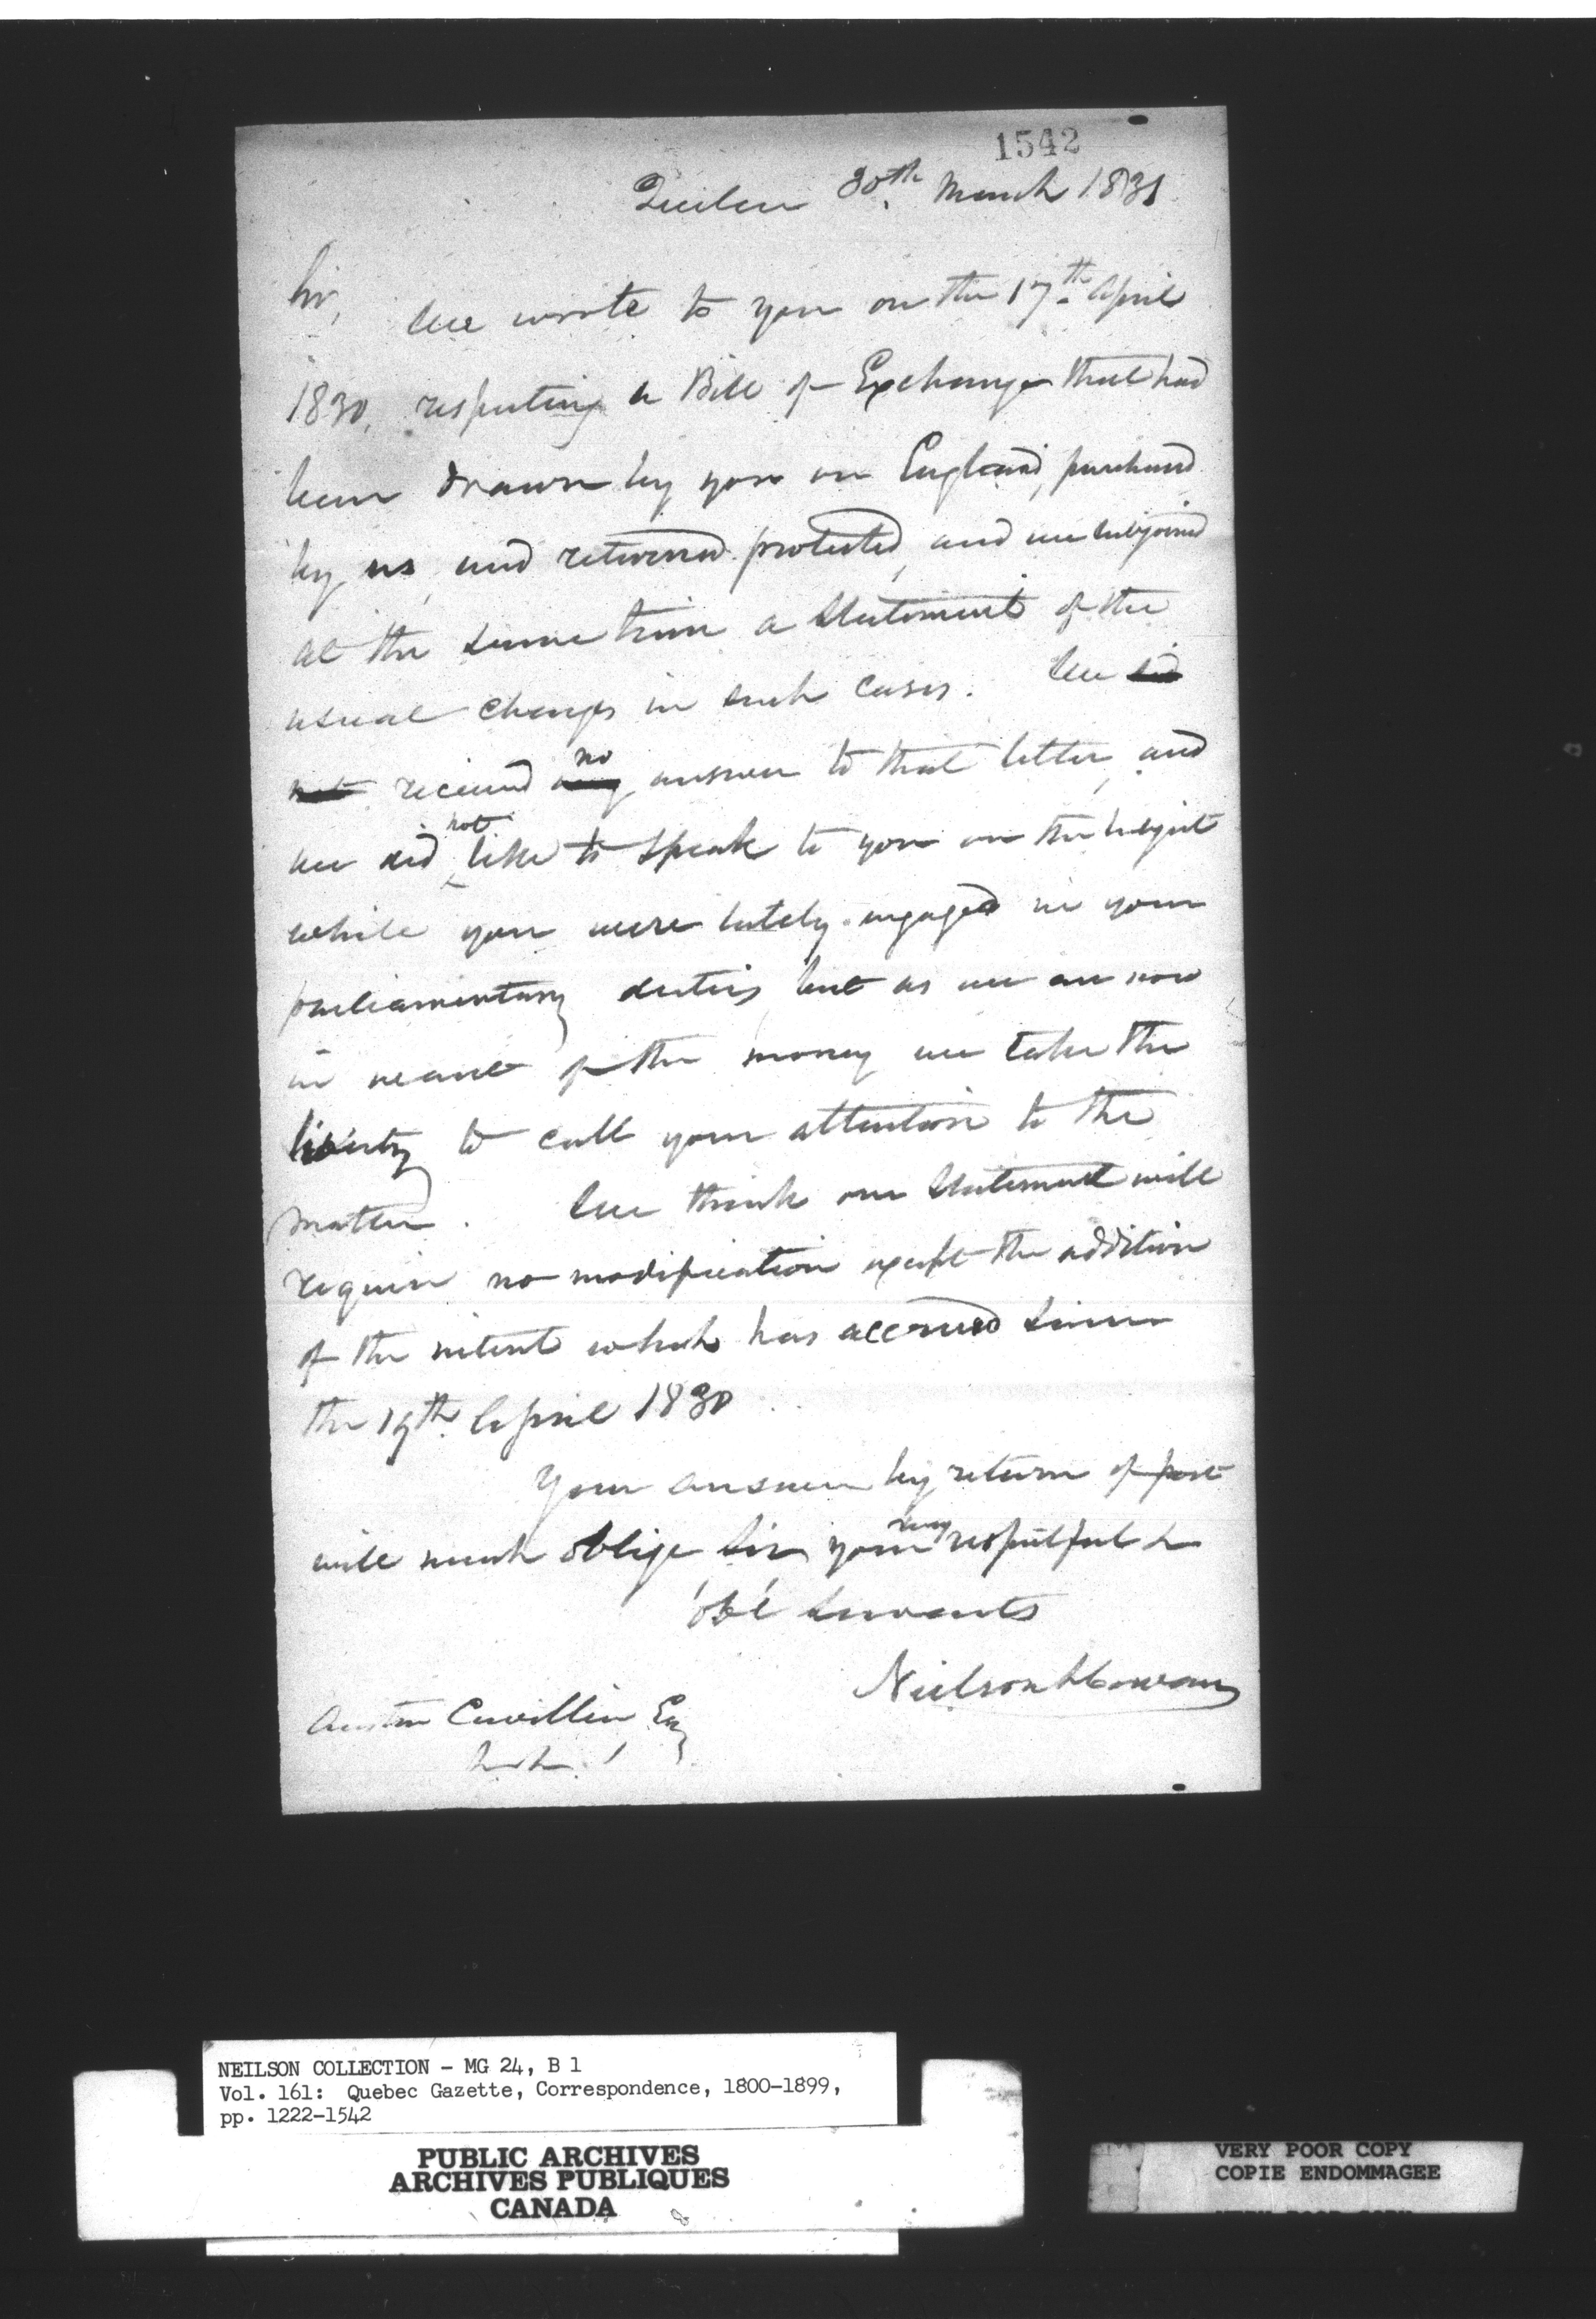 1542
Quebec 30th March 1831
Sir,
We wrote to you on the 17th April
1830, respecting a Bill of Exchange that had
been drawn by you on England, purchased
by us, and returned protested, and we subjoined
at the same time a statement of the
usual charges in such cases. We did
not received any no answer to that letter, and
we did not like to speak to you on the subject
while you were lately engaged in your
parliamentary duties, but as we are now
in want of the money we take the
liberty to call your attention to the
matter. We think our statement will
require no modification except the addition
of the interest which has accrued since
the 17th April 1830
Your answer by return of post
will much oblige Sir your very respectful &
obt servants
Neilson & Cowan
Austin Cuvillier Esq
NEILSON COLLECTION - MG 24, B 1
Vol. 161: Quebec Gazette, Correspondence, 1800-1899,
pp. 1222-1542
PUBLIC ARCHIVES
ARCHIVES PUBLIQUES
CANADA
VERY POOR COPY
COPIE ENDOMMAGEE